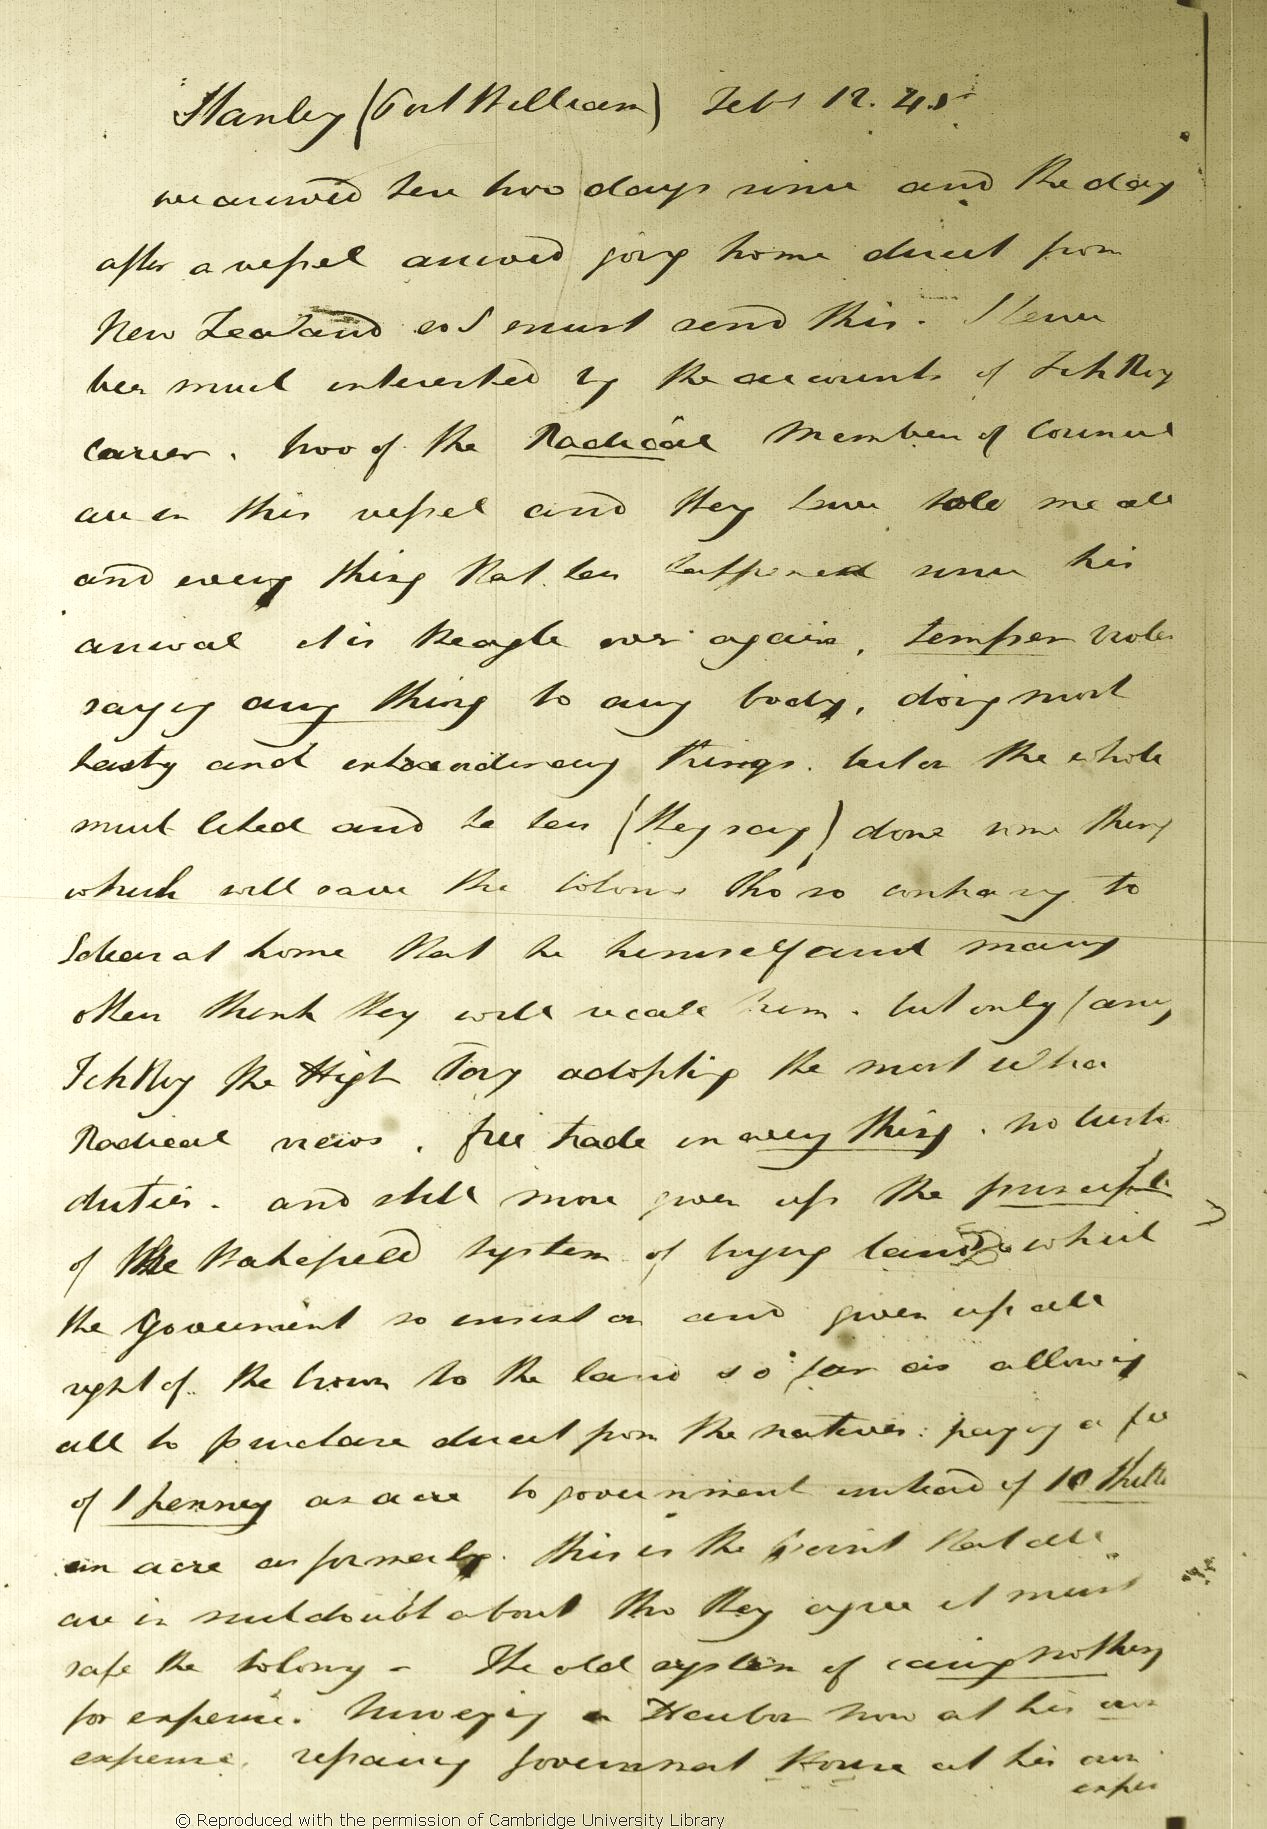 Stanley (Port William) Feby 12. 45
we arrived here two days since and the day
after a vessel arrived going home direct from
New Zealand so I must send this. I have
been much interested by the accounts of FitzRoy
career. two of the Radical Members of Council
are in this vessel and they have told me all
and every thing that has happened since his
arrival it is Beagle over again, temper
saying any thing to any body, doing most
hasty and extraordinary things. but on the whole
much liked and he has (they say) done some thing
which will save the Colony tho so contrary to
Ideas at home that he himself and many
others think they will recall him. but only fancy
FitzRoy the High Tory adopting the most
Radical views. free trade in every thing. no
duties. and still more given up the principle
of the Wakefield system of buying land which
the Government so insist on and given up all
right of the Crown to the land so far as allowing
all to purchase direct from the natives: paying a fee
of 1 penny an acre to government instead of 10
an acre as formerly. this is the point that all
are in much doubt about tho they agree it must
safe the Colony - The old system of caring nothing
for expense. Surveying a Harbor now at his own
expense. repairing Government House at his own
expen
© Reproduced with the permission of Cambridge University Library